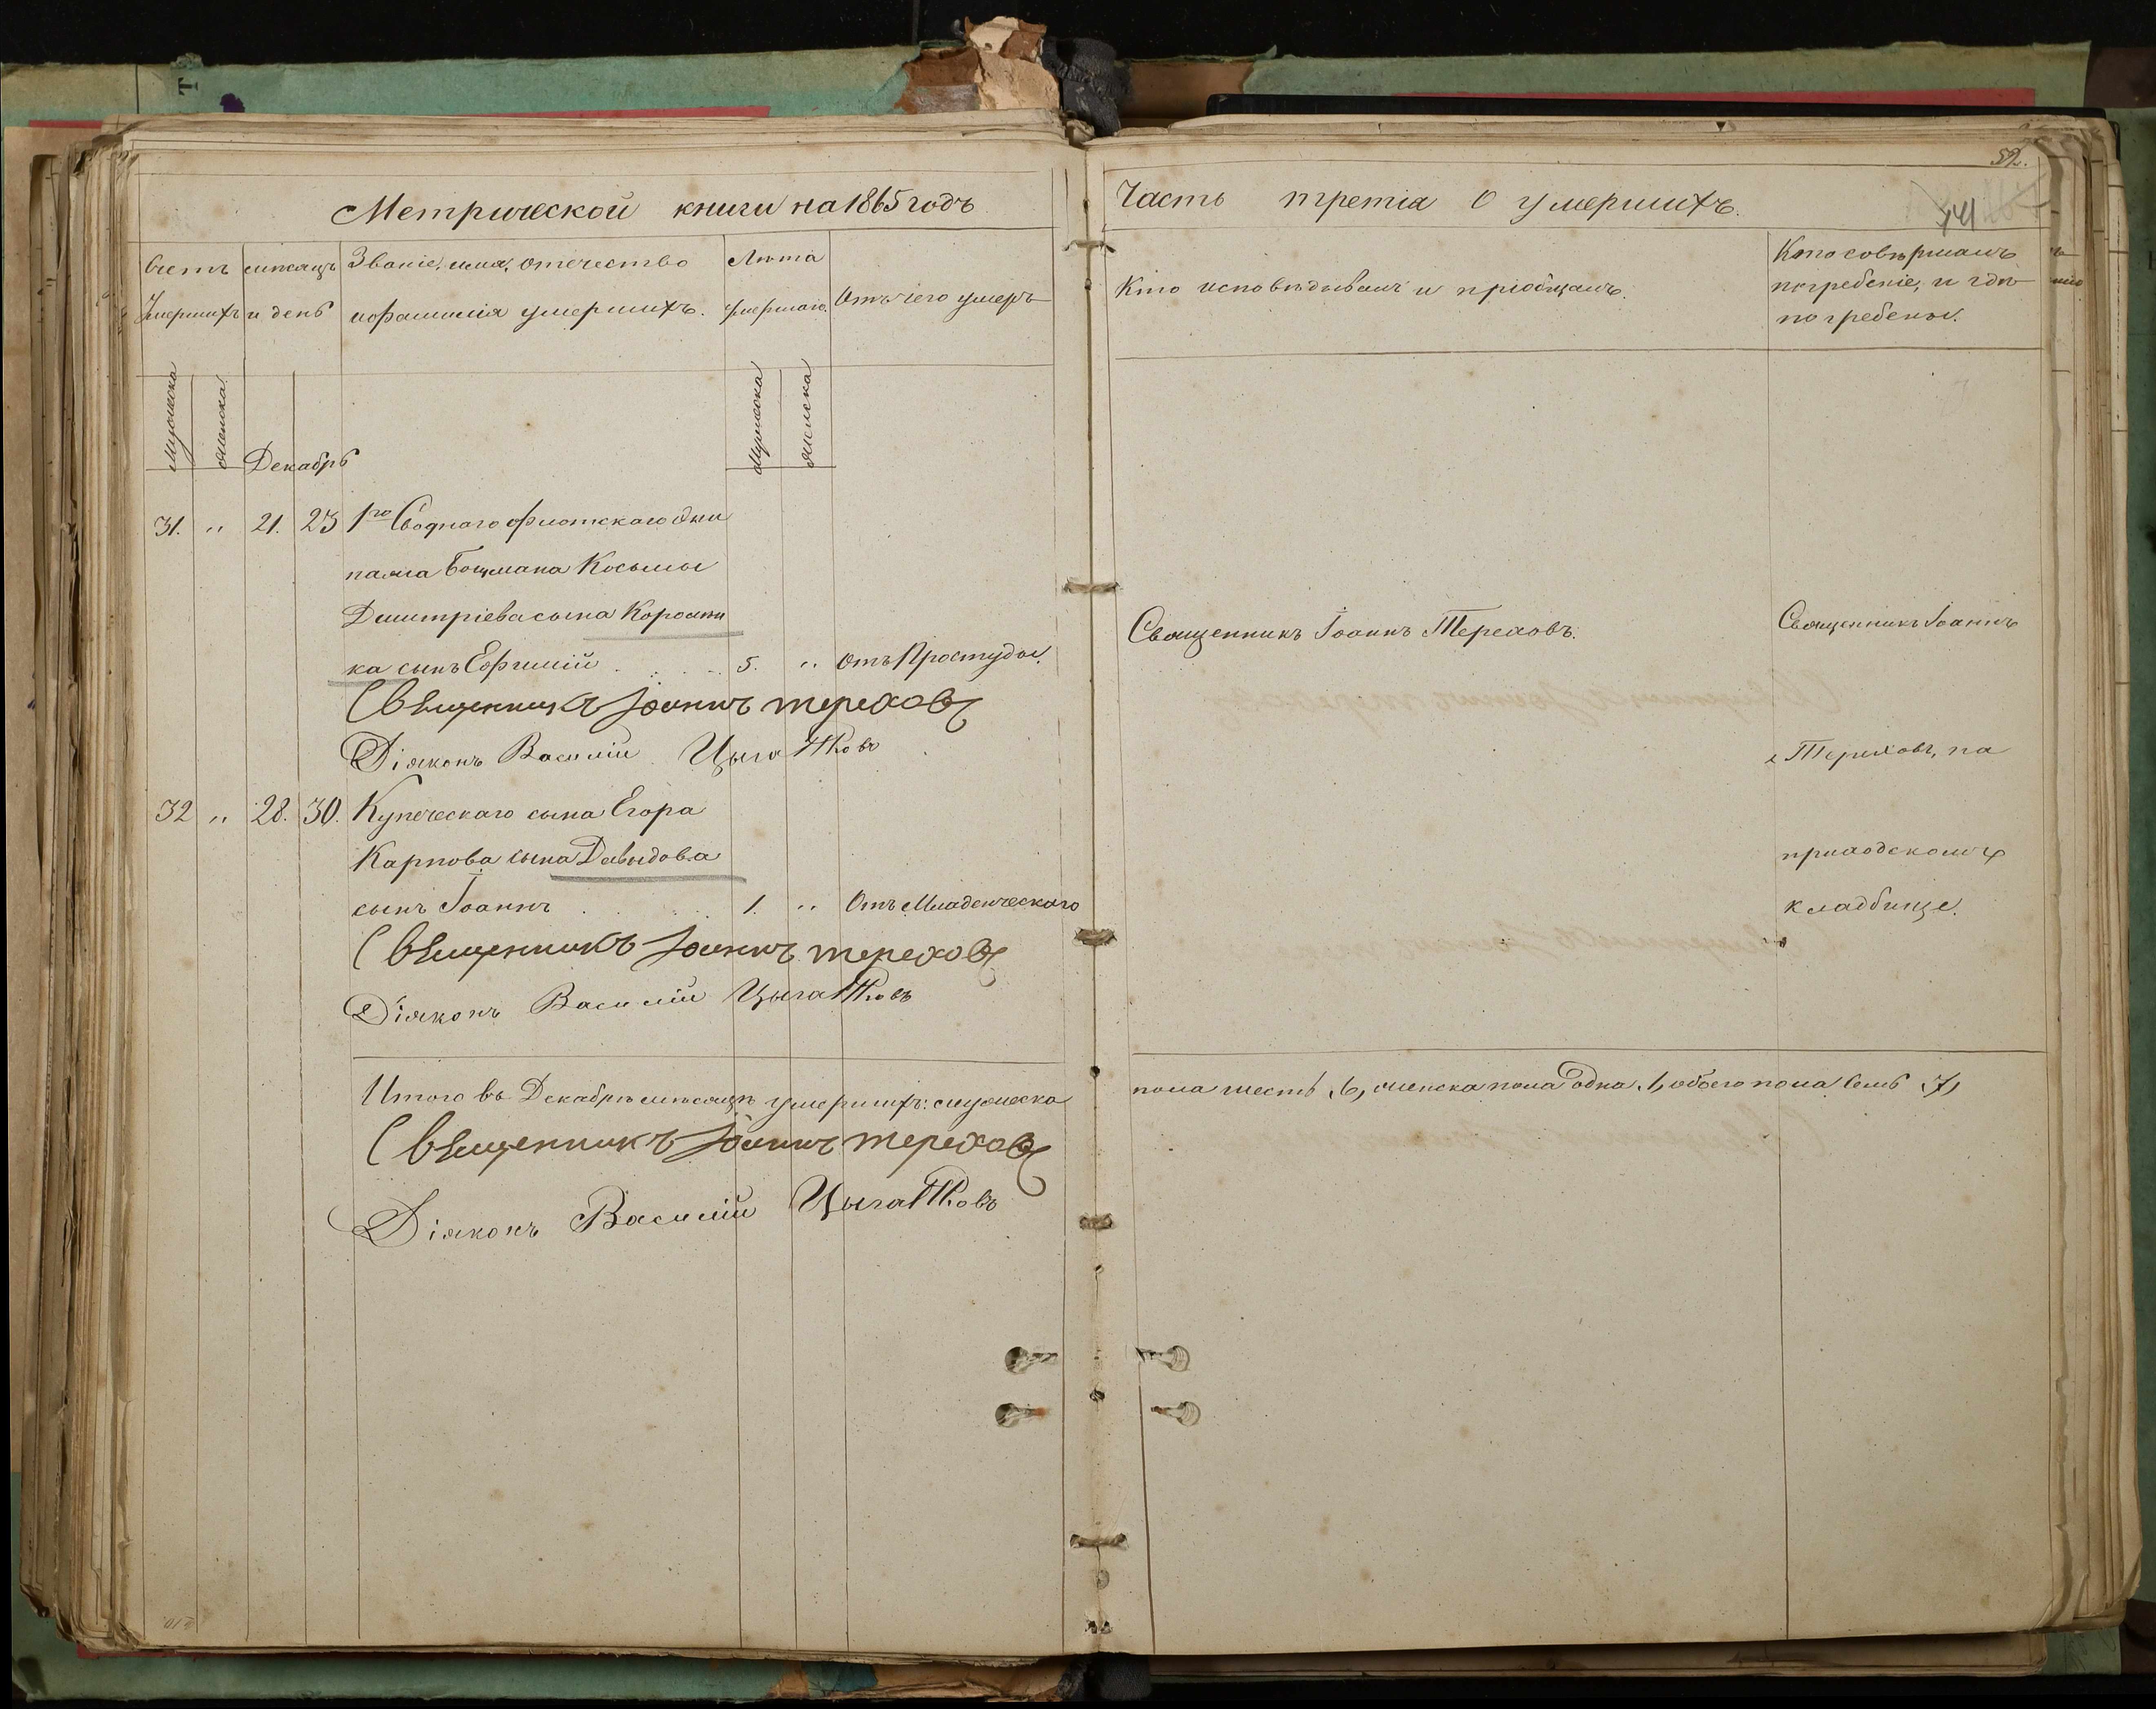 Метрической книги на 1865 годъ
Счетъ умершихъ
мѣсяцъ и день
Званіе, имя, отечество и фамилія умершихъ.
Лѣта умершаго.
Отъ чего умеръ
Мужеска
женска
Декабрь
Мужеска
женска
31. " 21. 23 1го Своднаго флотскаго Эки
пажа Боцмана Косьмы
Дмитріева сына Коромы
ка сынъ Ефимій . . . 5. " Отъ Простуды.
Священникъ Іоаннъ Тереховъ
Діяконъ Василій Цыгатковъ
32 " 28. 30. Купеческаго сына Егора
Карпова сына Давыдова
сынъ Іоаннъ . . . 1. " Отъ Младенческаго
Священникъ Іоаннъ Тереховъ
Діяконъ Василій Цыгатковъ
Итого въ Декабрѣ мѣсяцѣ умершихъ: мужеска
Священникъ Іоаннъ Тереховъ
Діяконъ Василій Цыгатковъ
52.
Часть третіа О умершихъ.
741
Кто исповѣдывалъ и пріобщалъ.
Кто совѣршалъ
погребеніе, и гдѣ
погребены.
Священникъ Іоаннъ Тереховъ.
Священникъ Іоаннъ
Тереховъ, на
приходскомъ
кладбище.
пола шесть, 6, женска пола одна, 1, обоего пола семь 7,